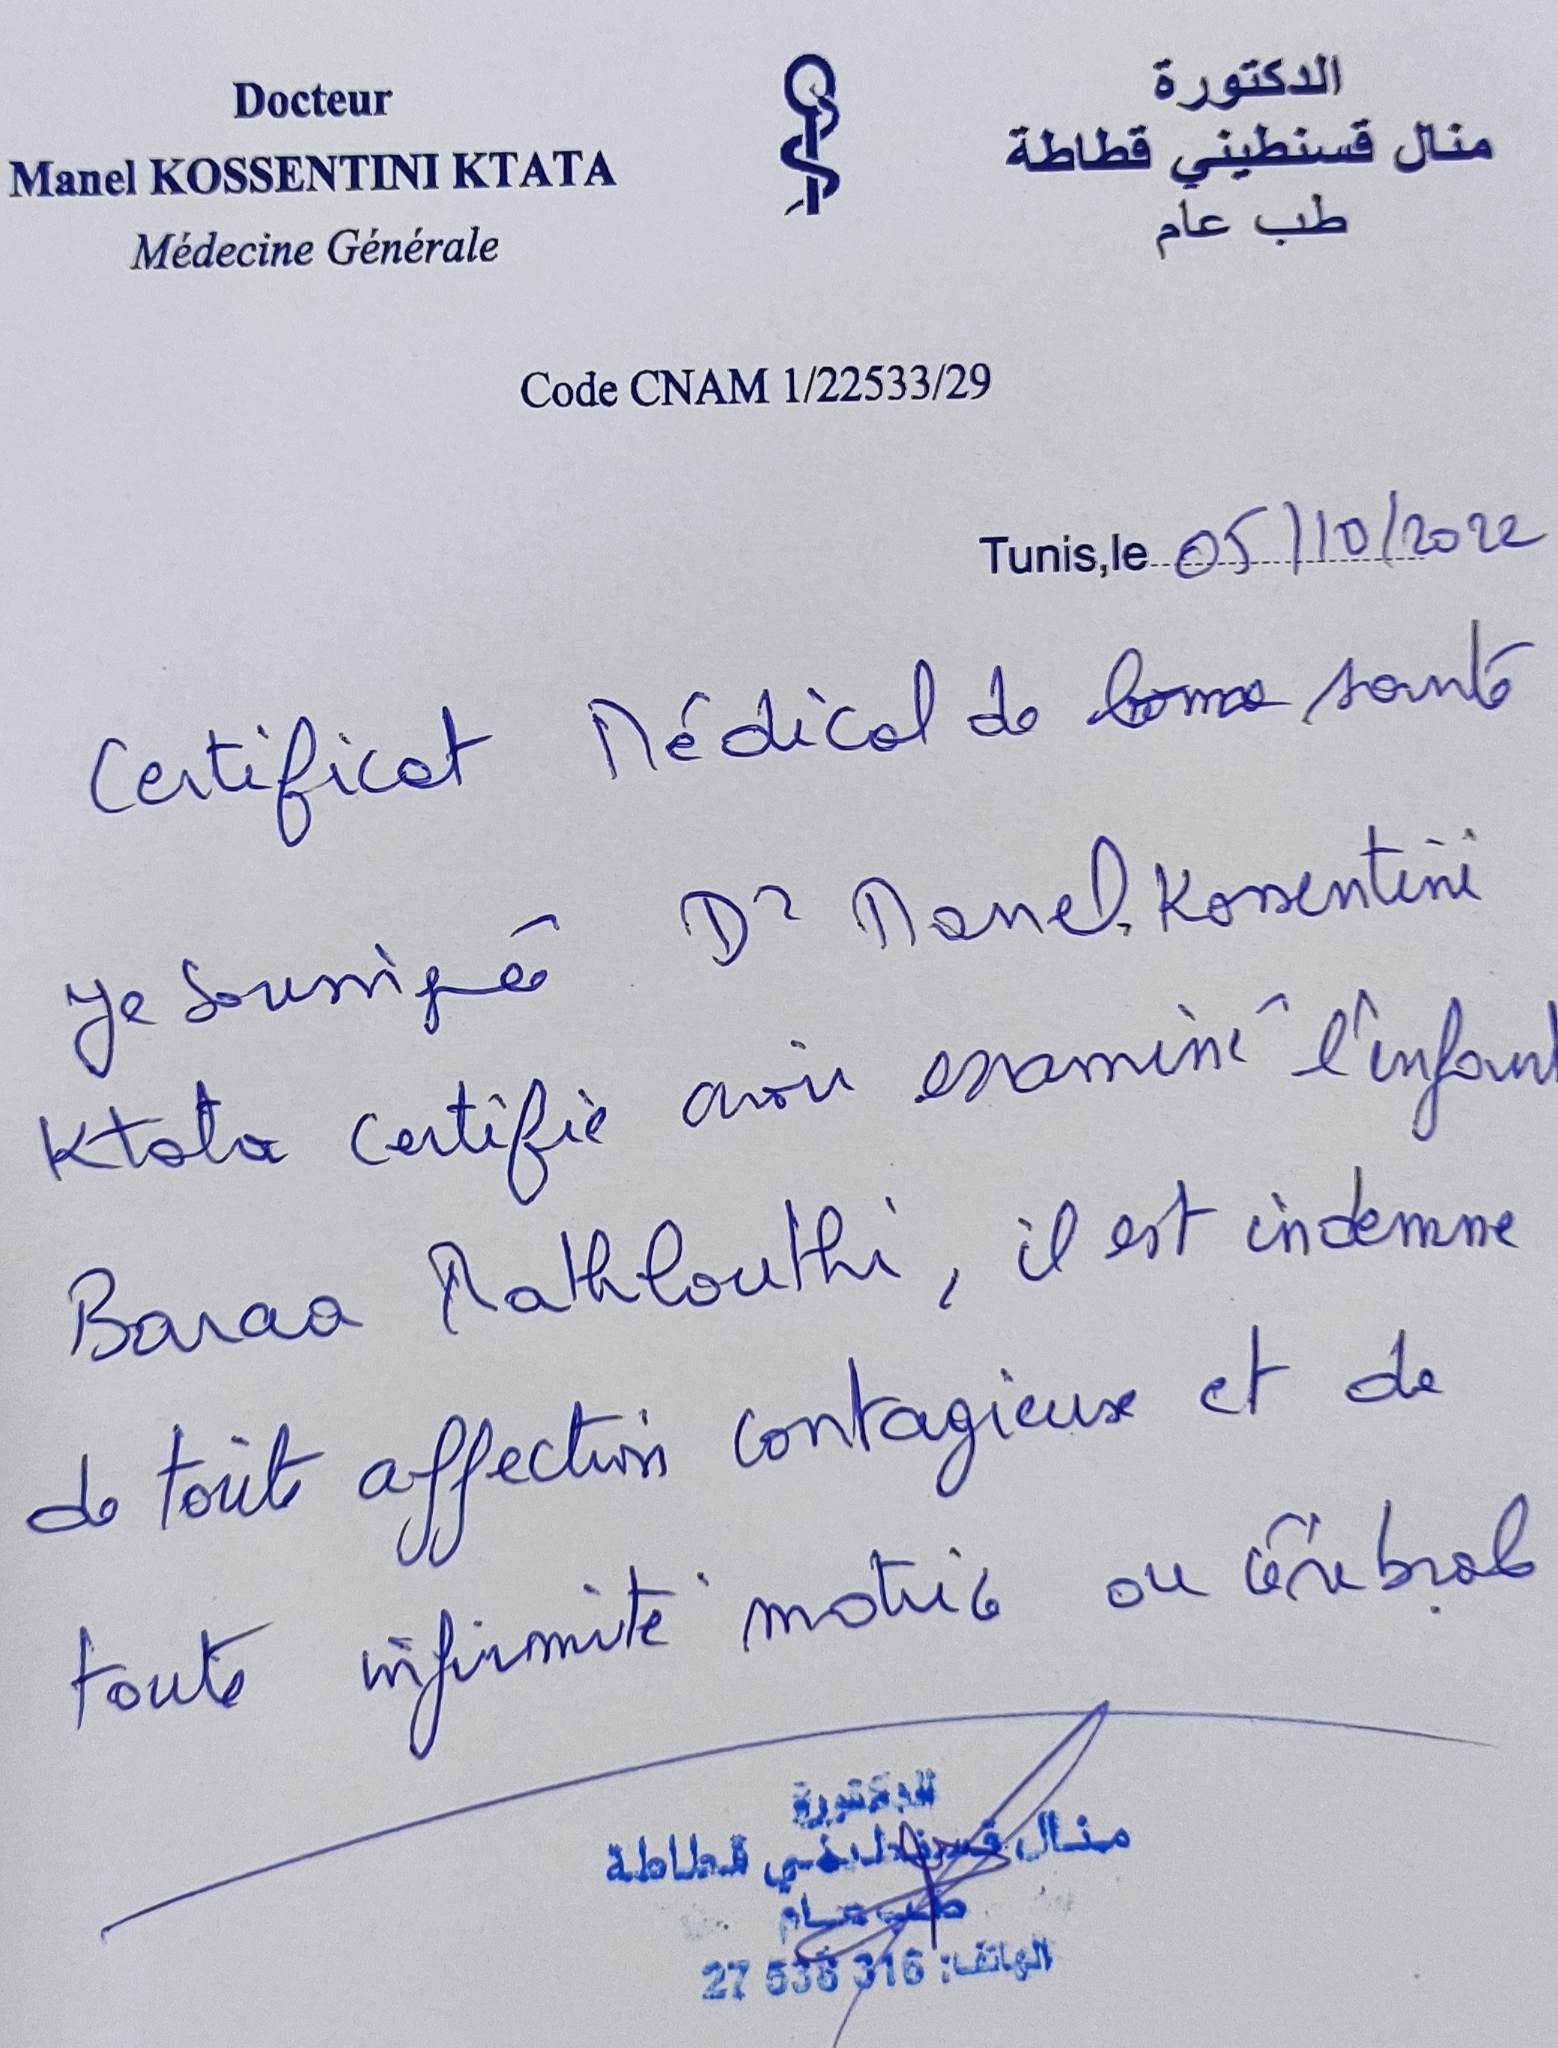 Docteur
Manel KOSSENTINI KTATA
Médecine Générale
الدكتورة
منال قسنطيني قطاطة
طب عام
Code CNAM 1/22533/29
Tunis,le 05/10/2022
Certificat Médical de bonne santé
Je soussigné Dr Manel Kossentini
Ktata certifie avoir examiné l'enfant
Baraa Mathlouthi, il est indemne
de toute affection contagieuse et de
toute infirmité motrice ou cérébrale
الدكتورة
منال قسنطيني قطاطة
طب عام
الهاتف: 27 536 316